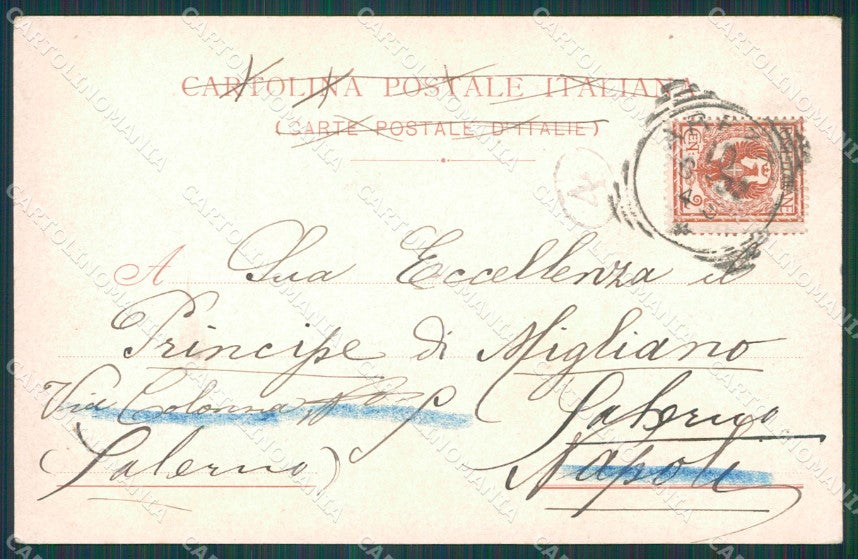 CARTOLINA POSTALE ITALIANA
(CARTE POSTALE D'ITALIE)
4
A Sua Eccellenza il
Principe di Migliano
Via Colonna
Salerno
(Salerno)
Napoli